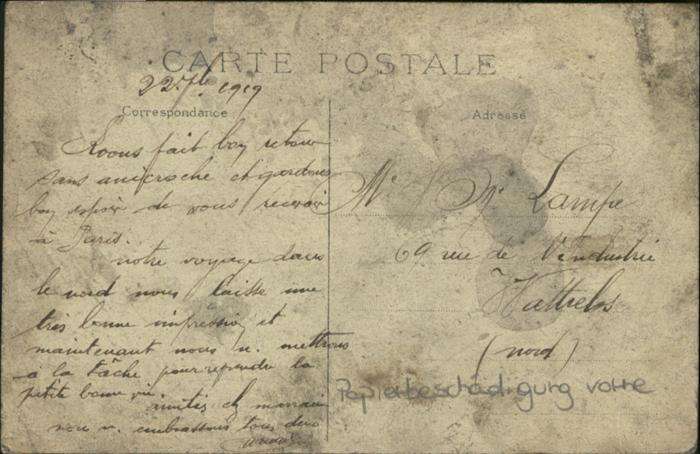 CARTE POSTALE
22 1919
Correspondance
Adresse
fait bon retour
sans anicroche et gardons
bon espoir de vous recevoir
à Paris.
notre voyage dans
le nord nous laisse une
très bonne impression et
maintenant nous n. mettrons
a la tâche pour reprendre la
petite bonne vie.
nous v. embrassons tous deux
Mr Lampe
69 rue de l'industrie
Wattrelos
(nord)
Papierbeschädigung vorne